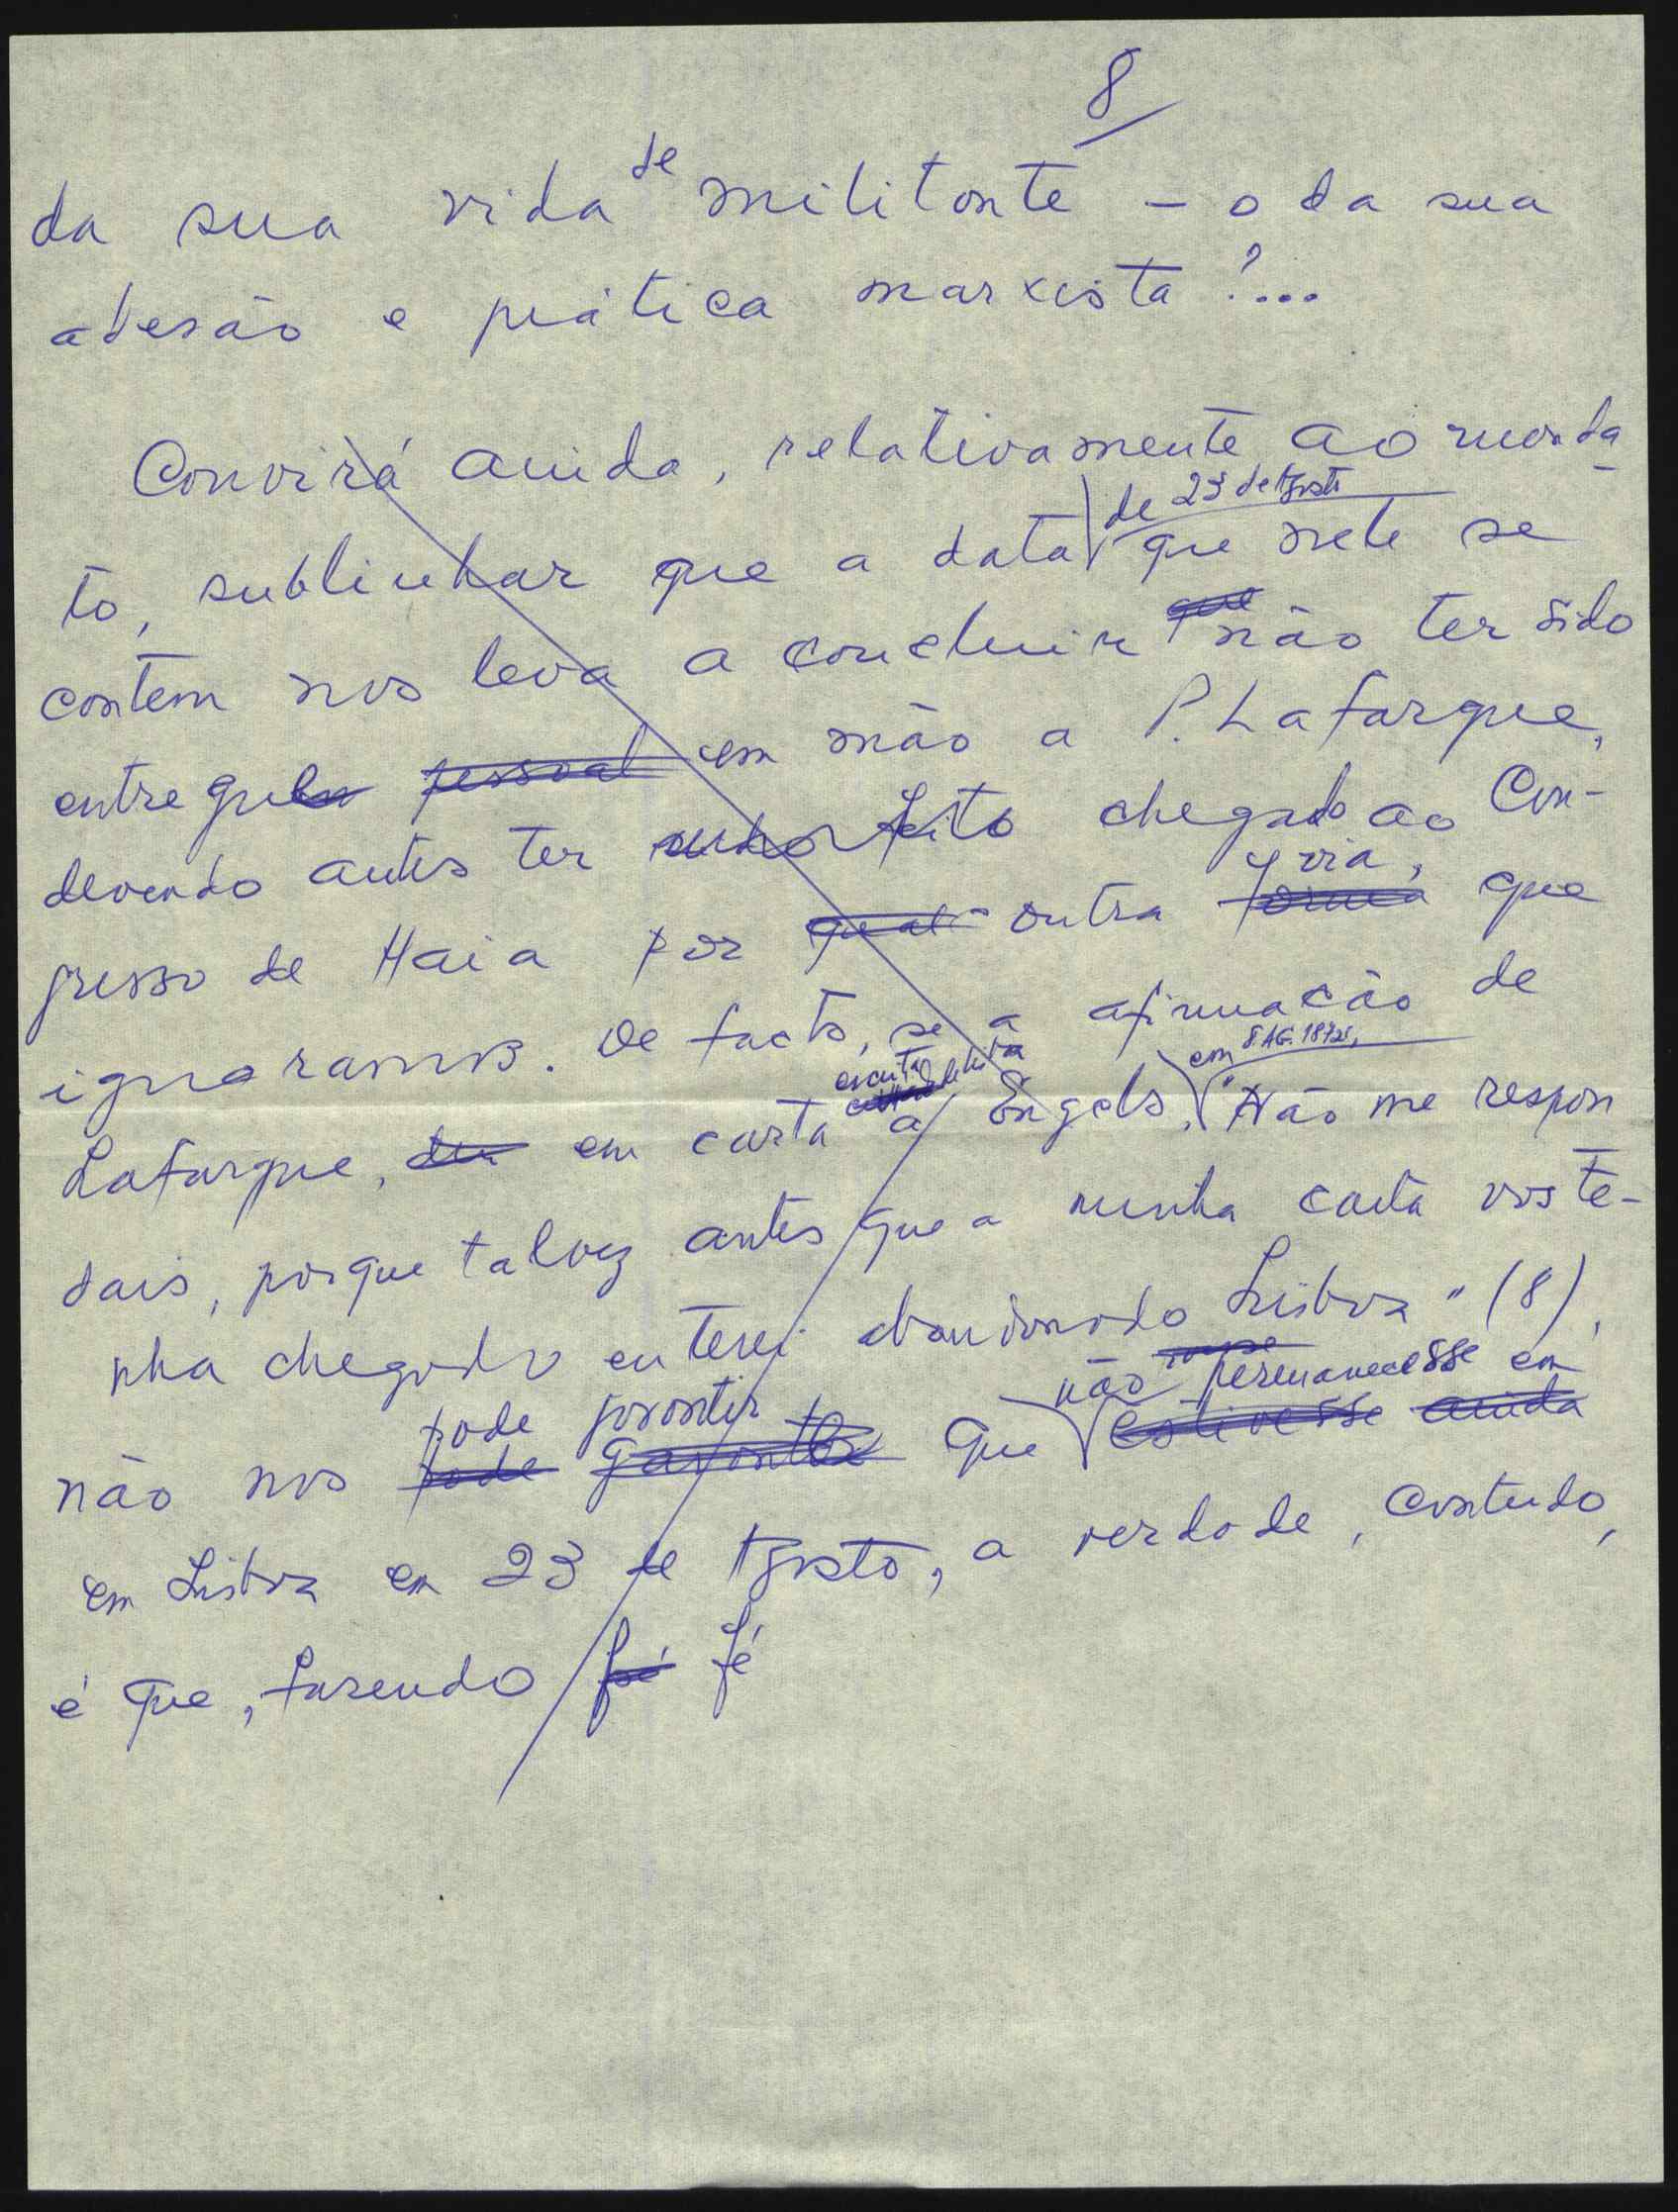 8
da sua vida de militante - o da sua
adesão e prática marxista?...
Convirá ainda, relativamente ao manda-
de 23 de Agosto
to, sublinhar que a data que nele se
contém nos leva a concluir que não ter sido
entregue pessoal em mão a P. Lafargue,
devendo antes ter feito chegado ao Con-
via,
gresso de Haia por qual outra forma que
ignoramos. De facto, se a afirmação de
escrita
em 8 AG. 1872,
Lafargue, em carta a Engels, "Não me respon
dais, porque talvez antes que a minha carta vos te-
nha chegado eu terei abandonado Lisboa" (8),
pode garantir
não permanecesse em
não nos pode garante que estivesse ainda
em Lisboa em 23 de Agosto, a verdade, contudo,
é que, fazendo fé fé